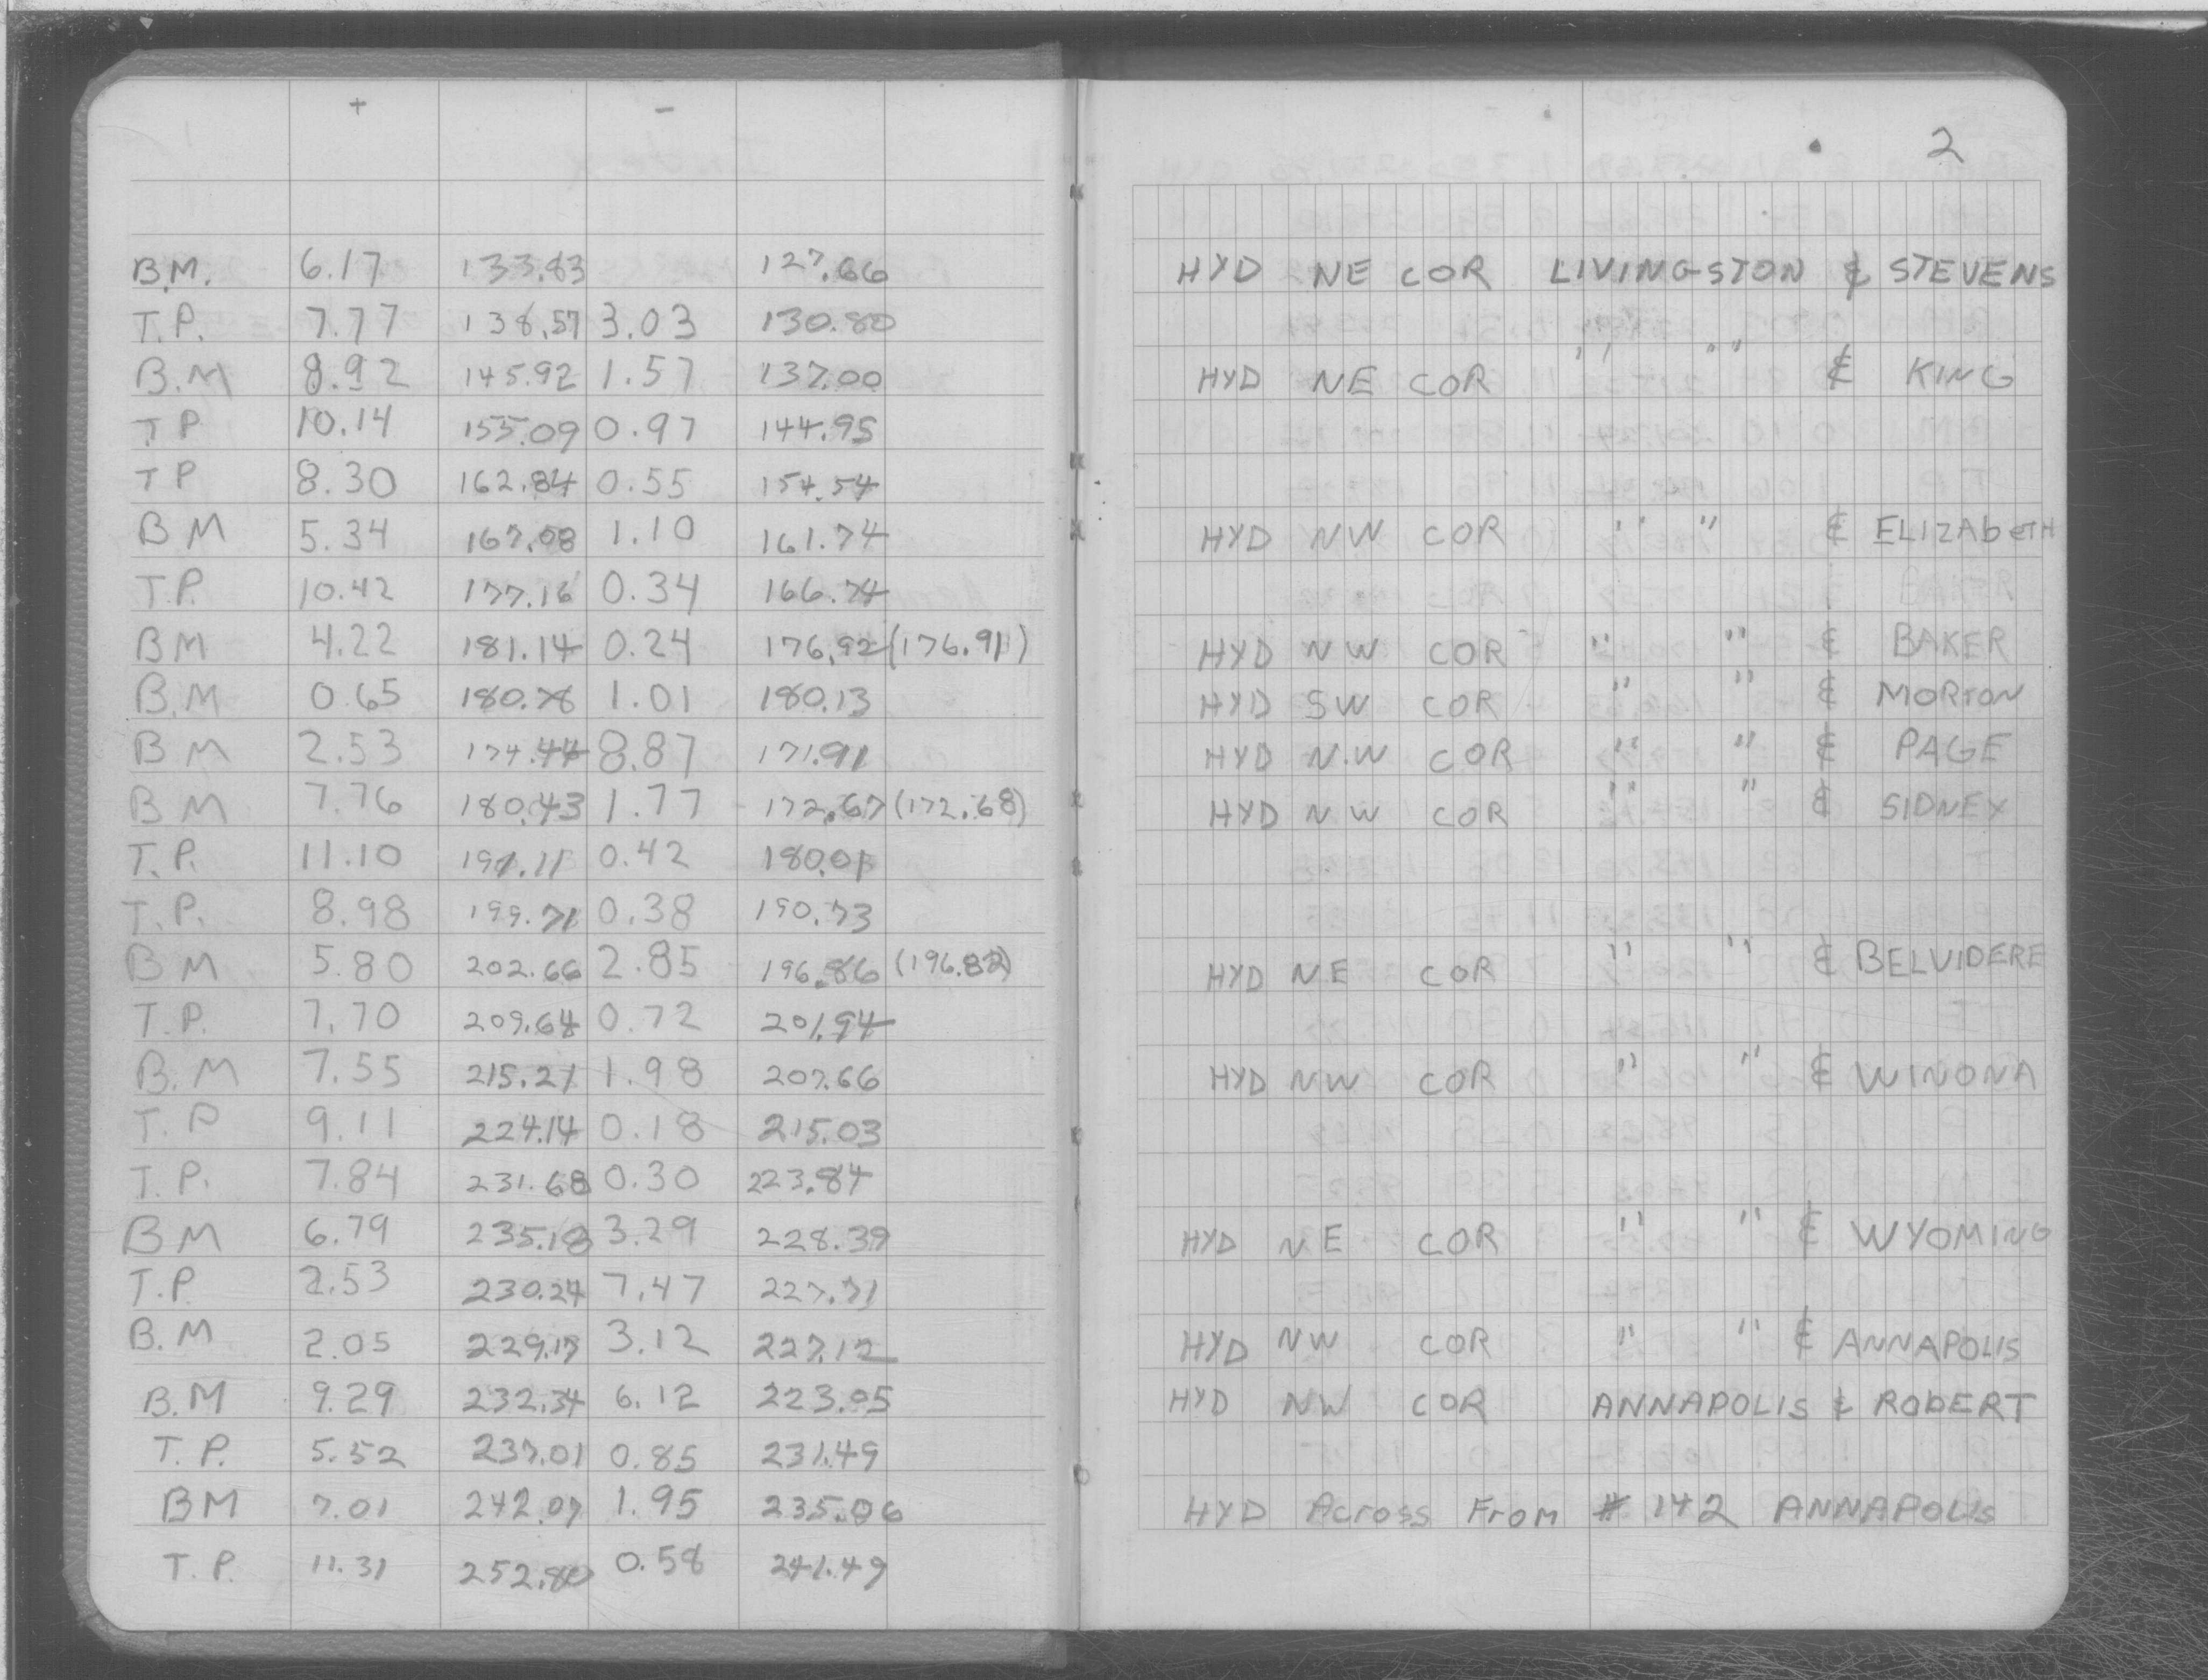 + -
B.M. 6.17 133.83 127.66
T.P. 7.77 138.57 3.03 130.80
B.M 8.92 145.92 1.57 137.00
T.P 10.14 155.09 0.97 144.95
T P 8.30 162.84 0.55 154.54
B M 5.34 167.08 1.10 161.74
T.P. 10.42 177.16 0.34 166.74
B M 4.22 181.14 0.24 176.92 (176.91)
B.M 0.65 180.78 1.01 180.13
B M 2.53 174.44 8.87 171.91
B M 7.76 180.43 1.77 172.67 (172.68)
T.P. 11.10 191.11 0.42 180.01
T.P. 8.98 199.71 0.38 190.73
B M 5.80 202.66 2.85 196.86 (196.82)
T.P. 7.70 209.64 0.72 201.94
B.M 7.55 215.21 1.98 207.66
T.P 9.11 224.14 0.18 215.03
T.P. 7.84 231.68 0.30 223.84
B M 6.79 235.18 3.29 228.39
T.P. 2.53 230.24 7.47 227.71
B.M 2.05 229.17 3.12 227.12
B.M 9.29 232.34 6.12 223.05
T.P. 5.52 237.01 0.85 231.49
B M 7.01 242.07 1.95 235.06
T.P. 11.31 252.80 0.58 241.49
2
HYD NE COR LIVINGSTON & STEVENS
HYD NE COR " " & KING
HYD NW COR " " & ELIZAbeTH
HYD NW COR " " & BAKER
HYD SW COR " " & MORTON
HYD N.W COR " " & PAGE
HYD NW COR " " & SIDNEY
HYD NE COR " " & BELVIDERE
HYD NW COR " " & WINONA
HYD NE COR " " & WYOMING
HYD NW COR " " & ANNAPOLIS
HYD NW COR ANNAPOLIS & RObERT
HYD Across From # 142 ANNAPOLIS